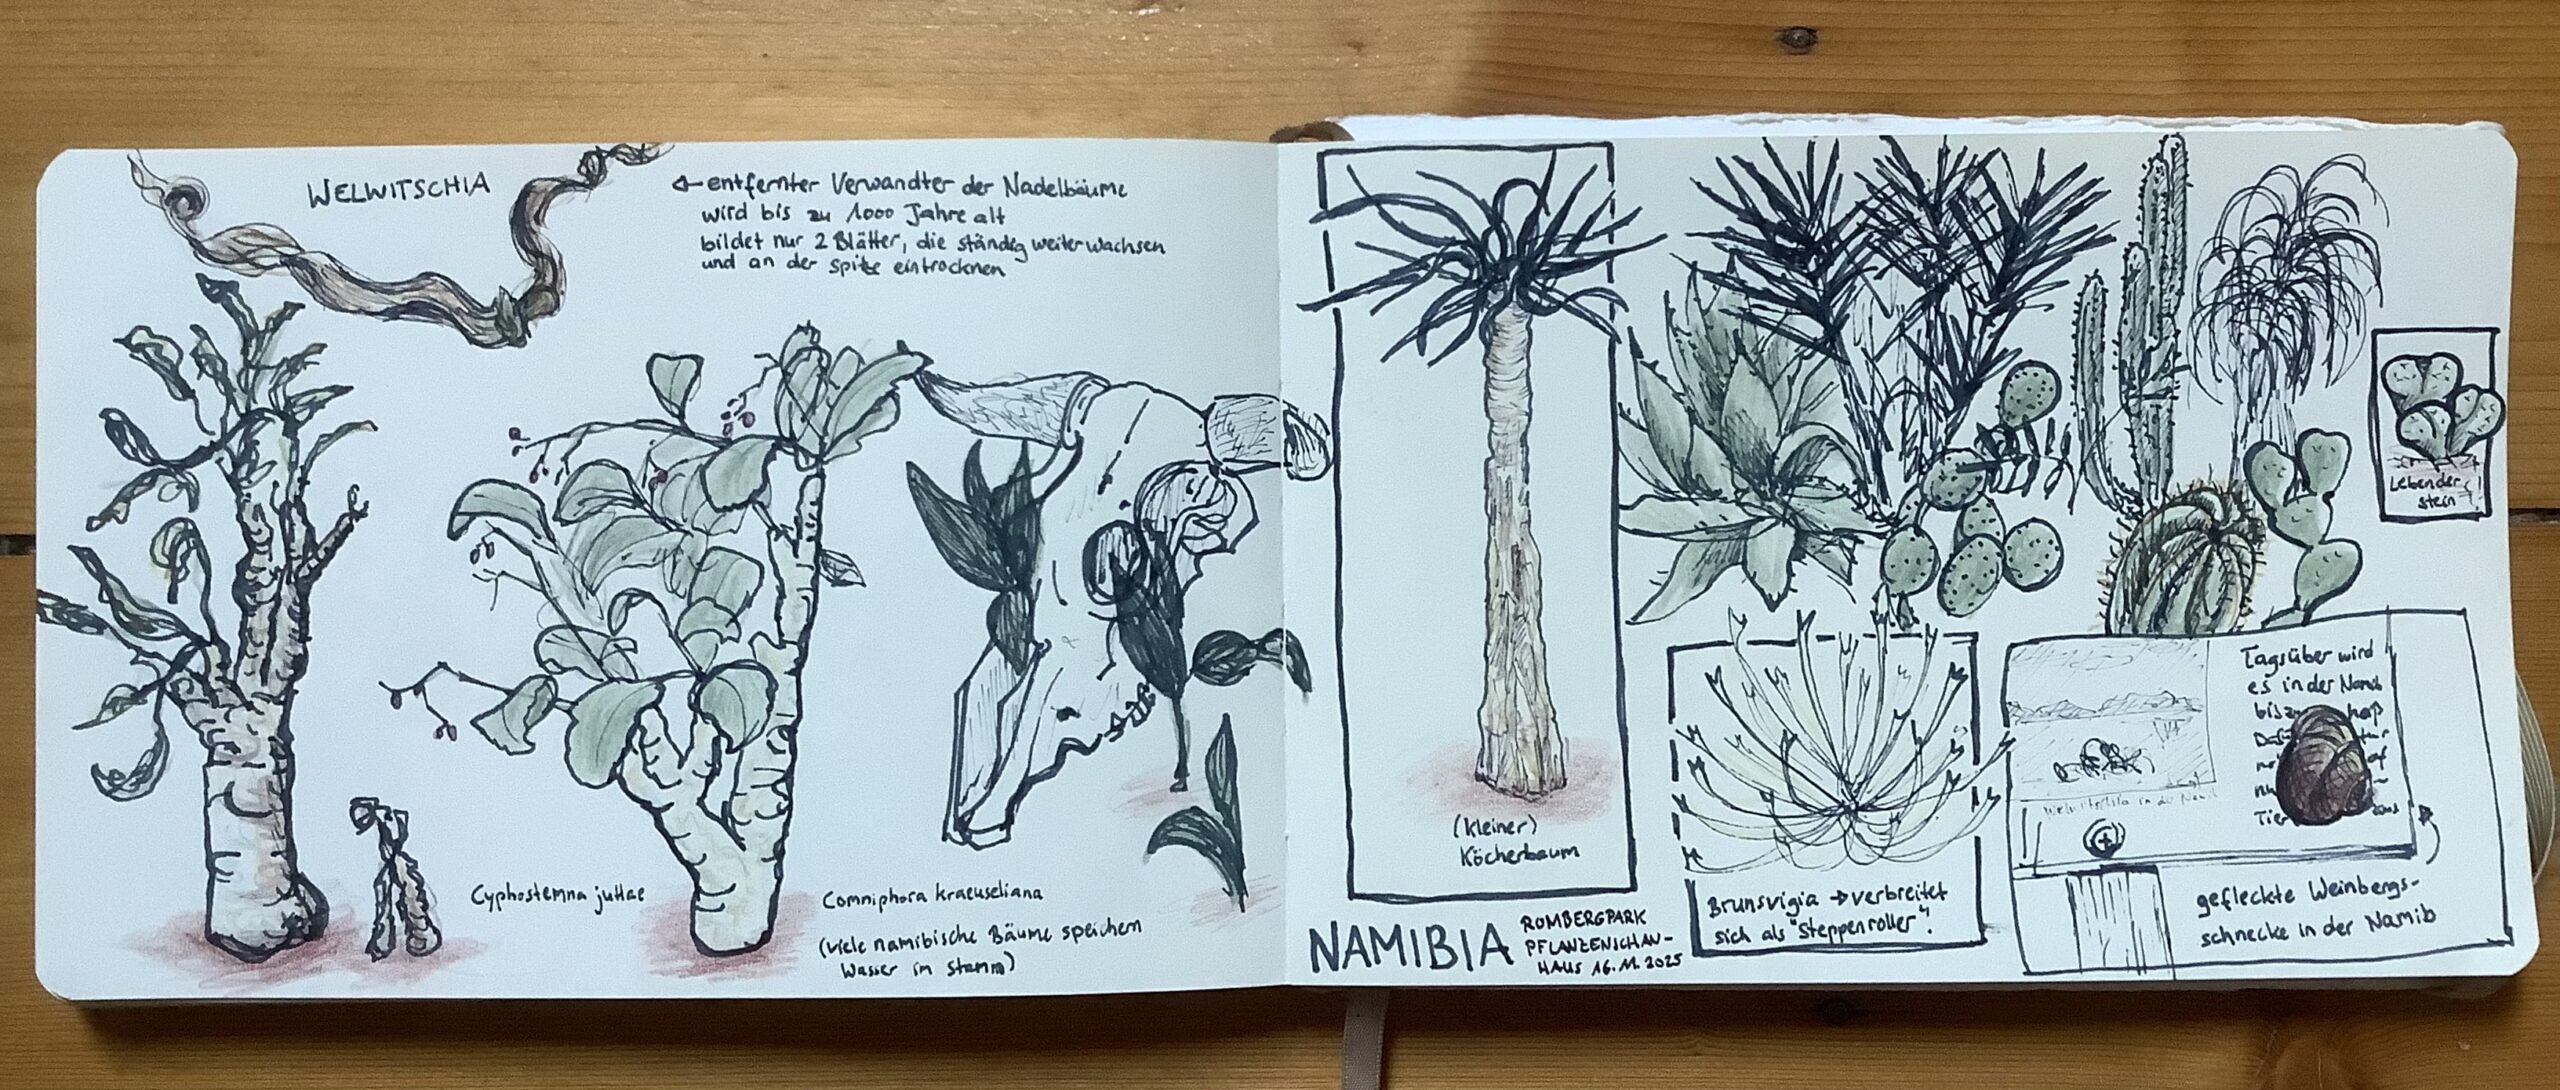 WELWITSCHIA
entfernter Verwandter der Nadelbäume
wird bis zu 1000 Jahre alt
bildet nur 2 Blätter, die ständig weiter wachsen
und an der Spitze eintrocknen
Cyphostemna juttae
Commiphora kraeuseliana
(viele namibische Bäume speichern
Wasser im Stamm)
(kleiner)
Köcherbaum
NAMIBIA
ROMBERGPARK
PFLANZENSCHAU-
HAUS 16.11.2025
Lebender
Stein
Brunsvigia → verbreitet
sich als "Steppenroller"!
Tagsüber wird
es in der Namib
heiß
Tier
Welwitschia in der Namib
gefleckte Weinbergs-
schnecke in der Namib